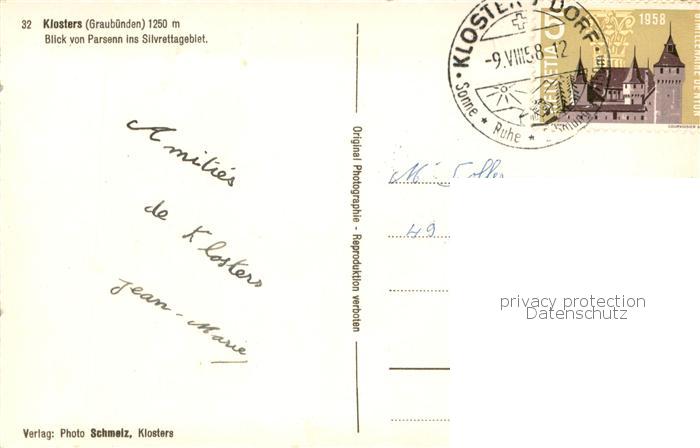 32 Klosters (Graubünden) 1250 m
Blick von Parsenn ins Silvrettagebiet.
KLOSTERS DORF
-9.VIII58-12
Sonne * Ruhe *
HELVETIA 5
1958
BIMILLENAIRE DE NYON
Amitiés
de Klosters
Jean-Marie
Original Photographie - Reproduktion verboten
49
privacy protection
Datenschutz
Verlag: Photo Schmelz, Klosters